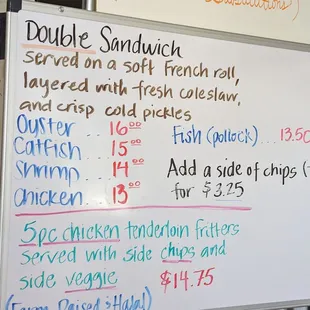 Double Sandwich
Served on a soft French roll,
layered with fresh coleslaw,
and crisp cold pickles
Oyster ... 16 00
Catfish ... 15 00
Shrimp ... 14 00
Chicken ... 13 00
Fish (pollock) ... 13.50
Add a side of chips (
for $3.25
5pc chicken tenderloin fritters
Served with side chips and
side veggie $14.75
(Farm Raised & Halal)